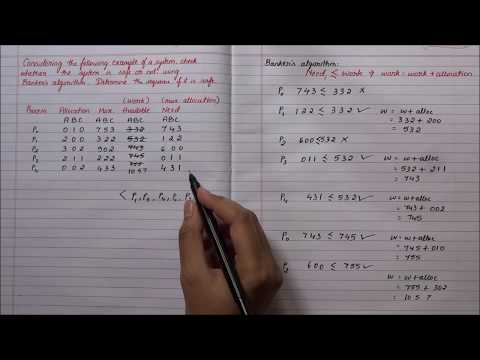 Considering the following example of a system, check
whether the system is safe or not using
Banker's algorithm. Determine the sequence if it is safe.
(Work) (max-allocation)
Process Allocation Max Available Need
A B C A B C A B C A B C
P0 0 1 0 7 5 3 3 3 2 7 4 3
P1 2 0 0 3 2 2 5 3 2 1 2 2
P2 3 0 2 9 0 2 7 4 3 6 0 0
P3 2 1 1 2 2 2 7 4 5 0 1 1
P4 0 0 2 4 3 3 7 5 5 4 3 1
10 5 7
< P1, P3, P4,
Banker's algorithm:
Need ≤ work → work = work + allocation
P0 743 ≤ 332 ×
P1 122 ≤ 332 ✓ w = w + alloc
= 332 + 200
= 532
P2 600 ≤ 532 ×
P3 011 ≤ 532 ✓ w = w + alloc
= 532 + 211
= 743
P4 431 ≤ 532 ✓ w = w + alloc
= 743 + 002
= 745
P0 743 ≤ 745 ✓ w = w + alloc
= 745 + 010
= 755
P2 600 ≤ 755 ✓ w = w + alloc
= 755 + 302
= 10 5 7